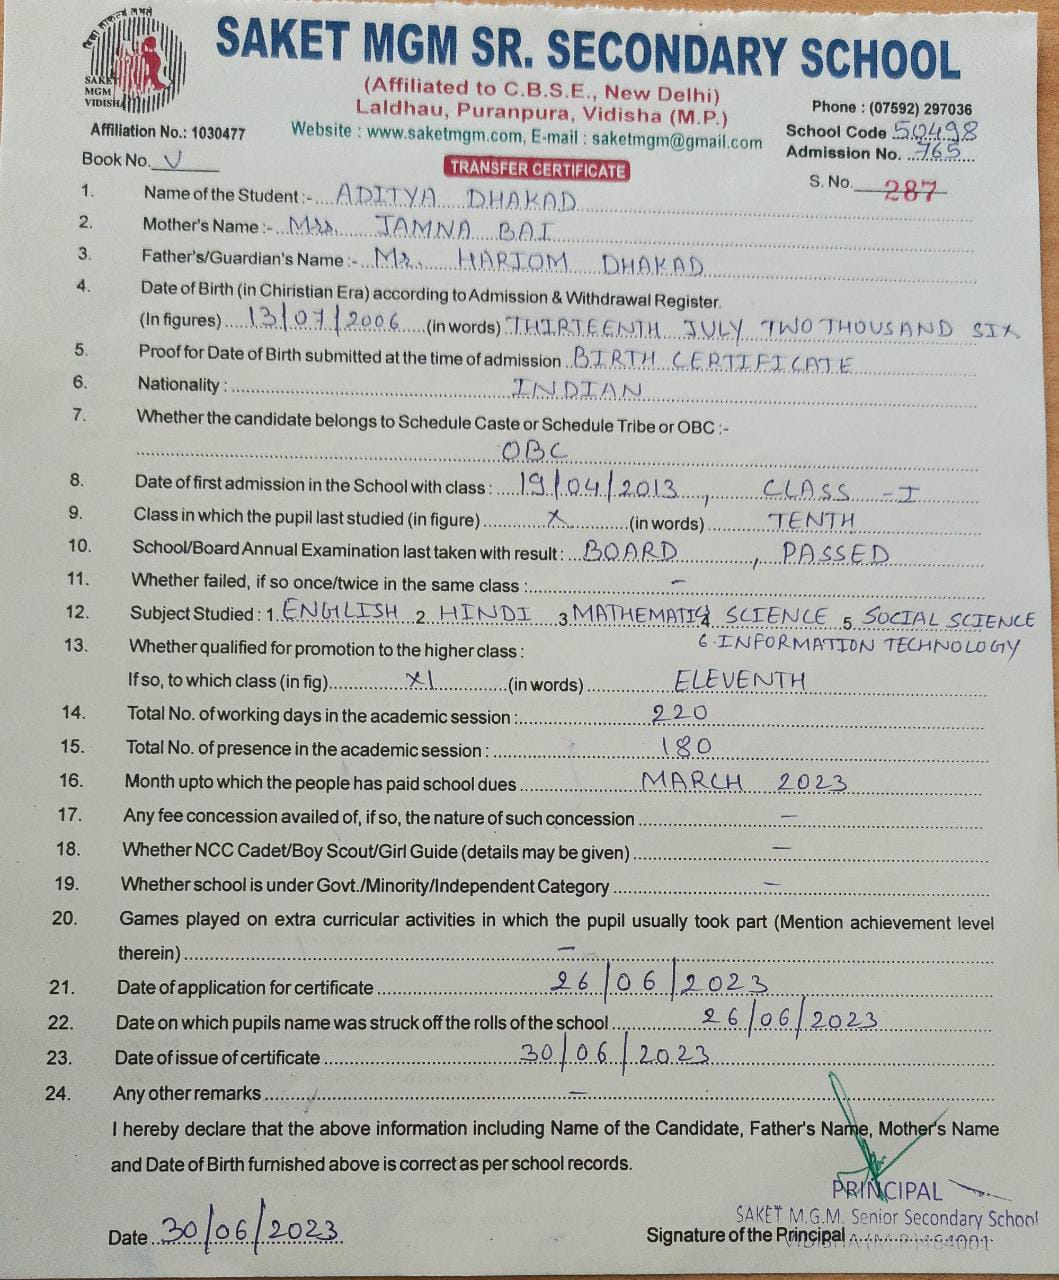 SAKET MGM VIDISHA
SAKET MGM SR. SECONDARY SCHOOL
(Affiliated to C.B.S.E., New Delhi)
Laldhau, Puranpura, Vidisha (M.P.)
Phone : (07592) 297036
Affiliation No.: 1030477
Website : www.saketmgm.com, E-mail : saketmgm@gmail.com
School Code 50498
Admission No. 765
Book No. V
TRANSFER CERTIFICATE
S. No. 287
1. Name of the Student :- ADITYA DHAKAD
2. Mother's Name :- Mrs. JAMNA BAI
3. Father's/Guardian's Name :- Mr. HARIOM DHAKAD
4. Date of Birth (in Chiristian Era) according to Admission & Withdrawal Register.
(In figures) 13/07/2006 (in words) THIRTEENTH JULY TWO THOUSAND SIX
5. Proof for Date of Birth submitted at the time of admission BIRTH CERTIFICATE
6. Nationality : INDIAN
7. Whether the candidate belongs to Schedule Caste or Schedule Tribe or OBC :-
OBC
8. Date of first admission in the School with class : 19/04/2013, CLASS - I
9. Class in which the pupil last studied (in figure) X (in words) TENTH
10. School/Board Annual Examination last taken with result : BOARD, PASSED
11. Whether failed, if so once/twice in the same class : -
12. Subject Studied : 1. ENGLISH 2. HINDI 3. MATHEMATICS 4. SCIENCE 5. SOCIAL SCIENCE
6. INFORMATION TECHNOLOGY
13. Whether qualified for promotion to the higher class :
If so, to which class (in fig) XI (in words) ELEVENTH
14. Total No. of working days in the academic session : 220
15. Total No. of presence in the academic session : 180
16. Month upto which the people has paid school dues MARCH 2023
17. Any fee concession availed of, if so, the nature of such concession -
18. Whether NCC Cadet/Boy Scout/Girl Guide (details may be given) -
19. Whether school is under Govt./Minority/Independent Category -
20. Games played on extra curricular activities in which the pupil usually took part (Mention achievement level
therein) -
21. Date of application for certificate 26/06/2023
22. Date on which pupils name was struck off the rolls of the school 26/06/2023
23. Date of issue of certificate 30/06/2023
24. Any other remarks -
I hereby declare that the above information including Name of the Candidate, Father's Name, Mother's Name
and Date of Birth furnished above is correct as per school records.
PRINCIPAL
SAKET M.G.M. Senior Secondary School
Date 30/06/2023
Signature of the Principal
VIDISHA (M.P.) 464001